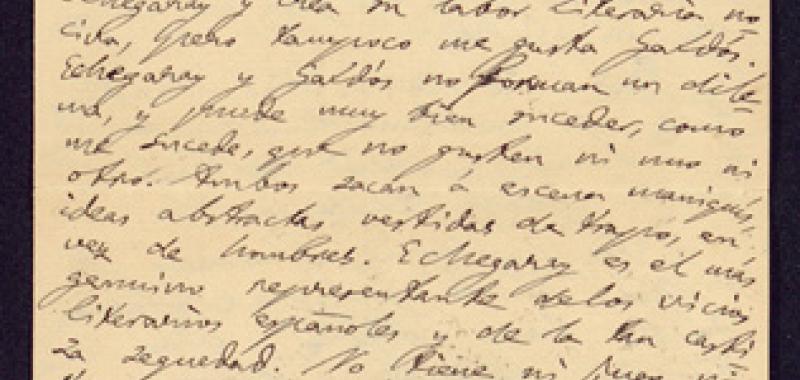 Echegaray y creo su labor literaria no
civa, pero tampoco me gusta Galdós.
Echegaray y Galdós no forman un dile-
ma, y puede muy bien suceder, como
me sucede, que no gusten ni uno ni
otro. Ambos sacan á escena maniquís,
ideas abstractas vestidas de trapo, en
vez de hombres. Echegaray es el más
genuino representante de los vicios
literarios españoles y de la tan casti
za zeguedad. No tiene ni